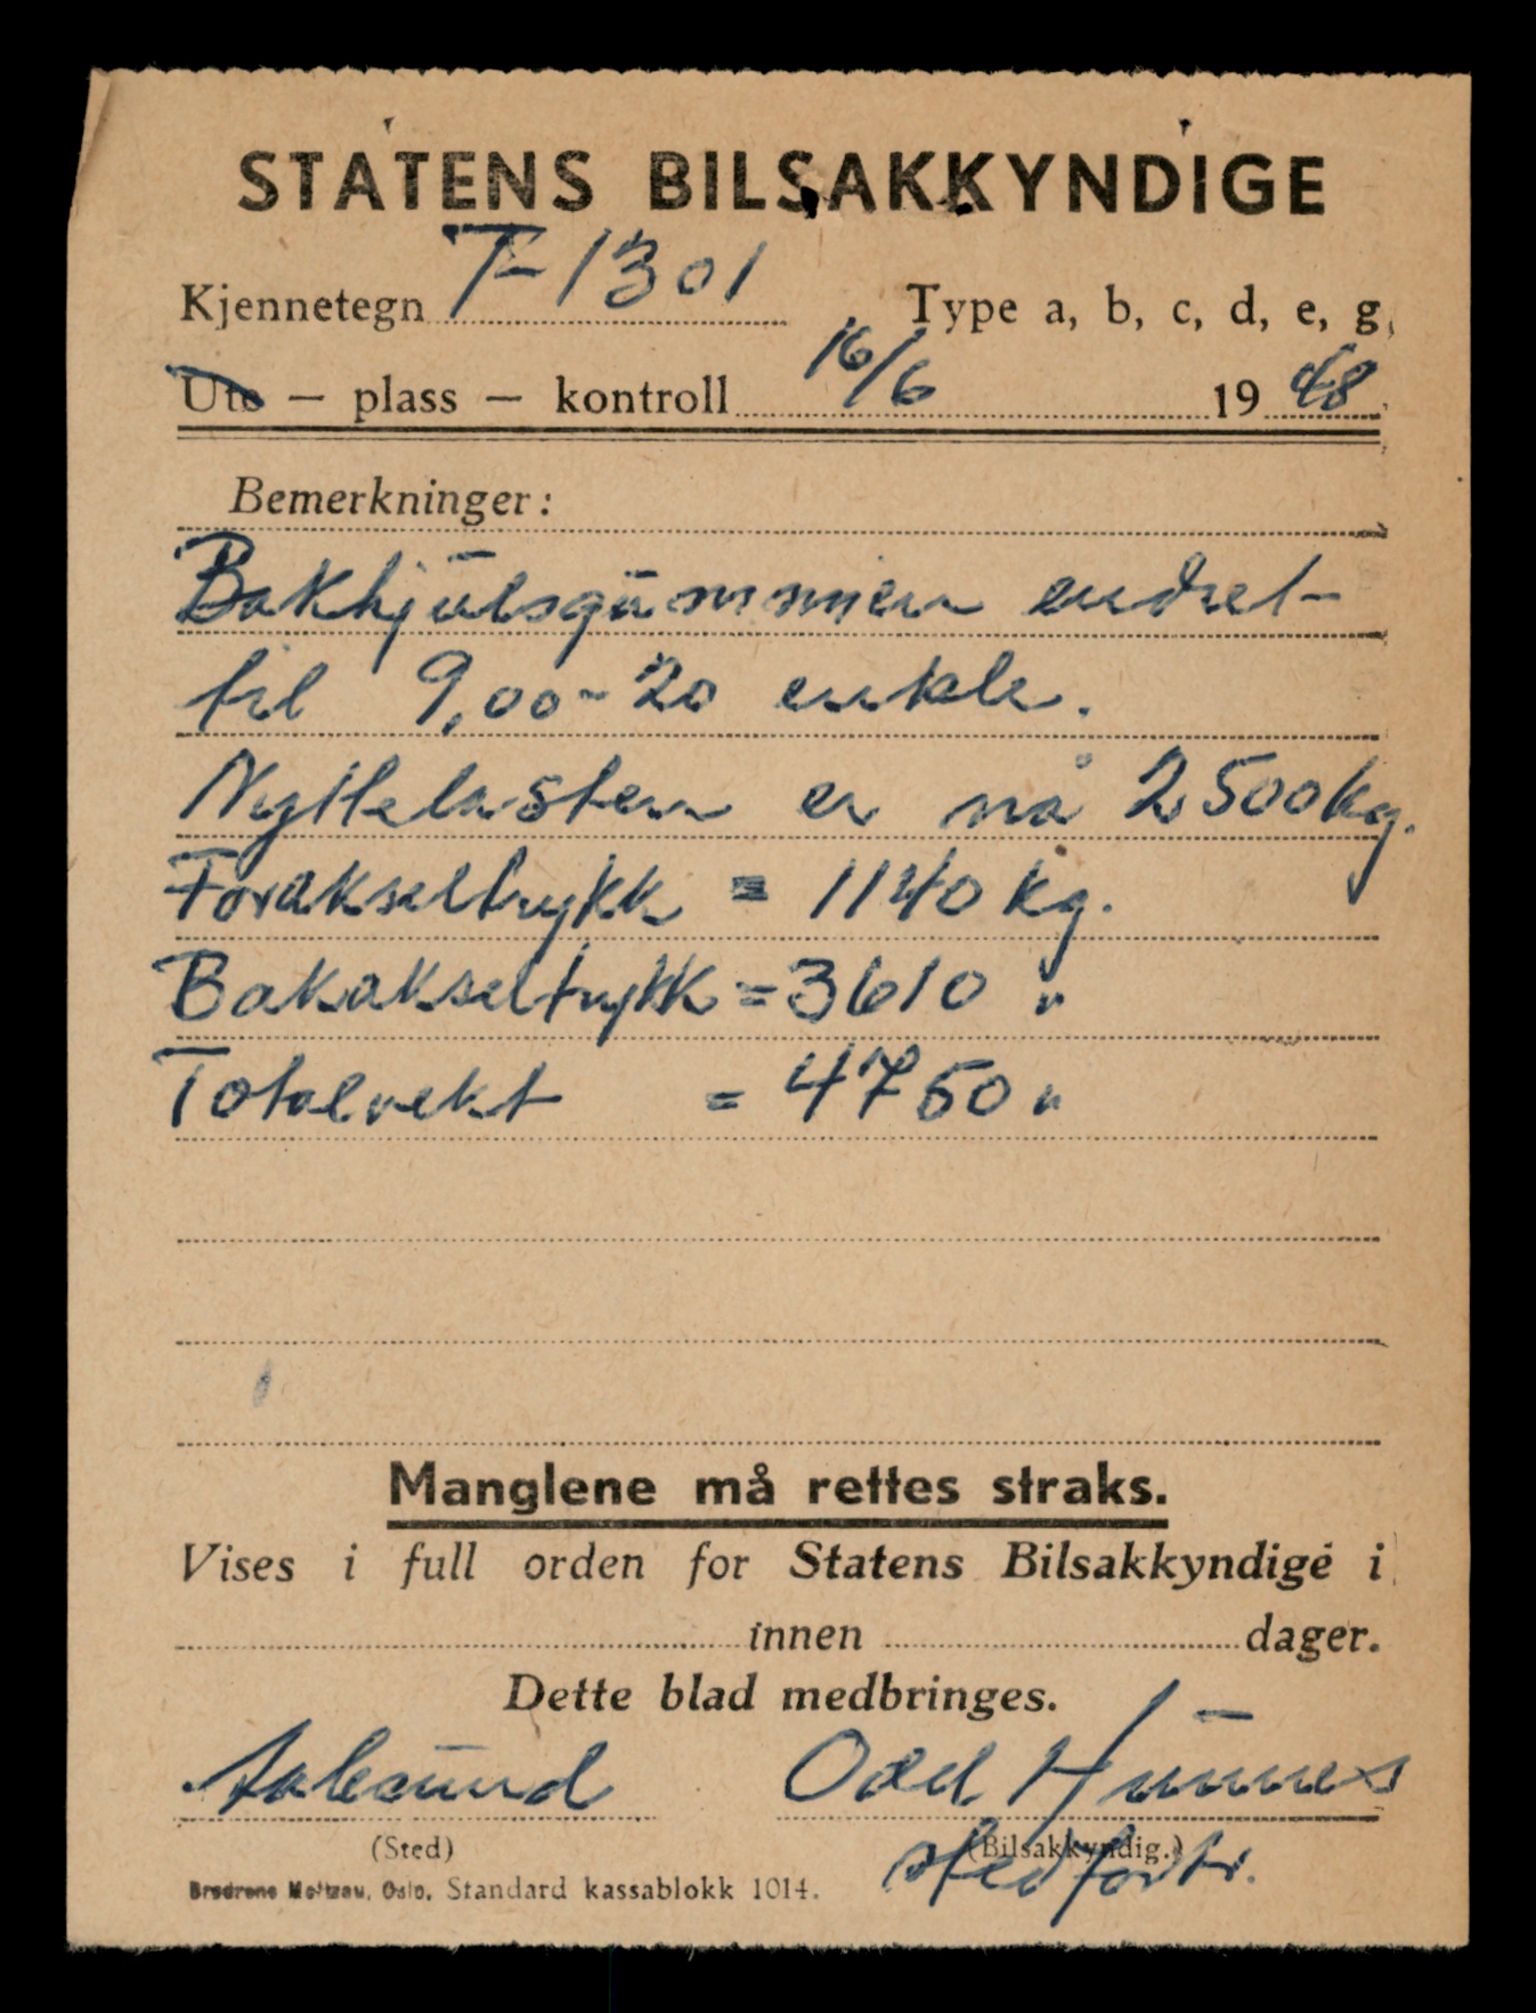 STATENS BILSAKKYNDIGE
Kjennetegn T-1301 Type a, b, c, d, e, g,
Ute — plass — kontroll 16/6 1948
Bemerkninger:
Bakhjulsgummien endret
til 9,00-20 enkle.
Nyttelasten er nå 2500 kg.
Forakseltrykk = 1140 kg.
Bakakseltrykk = 3610 "
Totalvekt = 4750 "
Manglene må rettes straks.
Vises i full orden for Statens Bilsakkyndige i
innen dager.
Dette blad medbringes.
Aalesund Odd
(Sted) (Bilsakkyndig.)
stedfortr.
Brødrene Moltzau, Oslo. Standard kassablokk 1014.